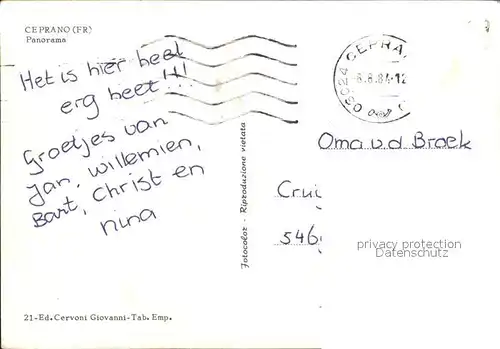 CEPRANO (FR)
Panorama
Het is hier heel
erg heet!!!
Groetjes van
Jan, Willemien,
Bart, Christ en
nina
Fotocolor - Riproduzione vietata
03024 CEPRA
6.8.84-12
Oma v.d Broek
Crui
546
privacy protection
Dansonnens
21-Ed. Cervoni Giovanni-Tab. Emp.